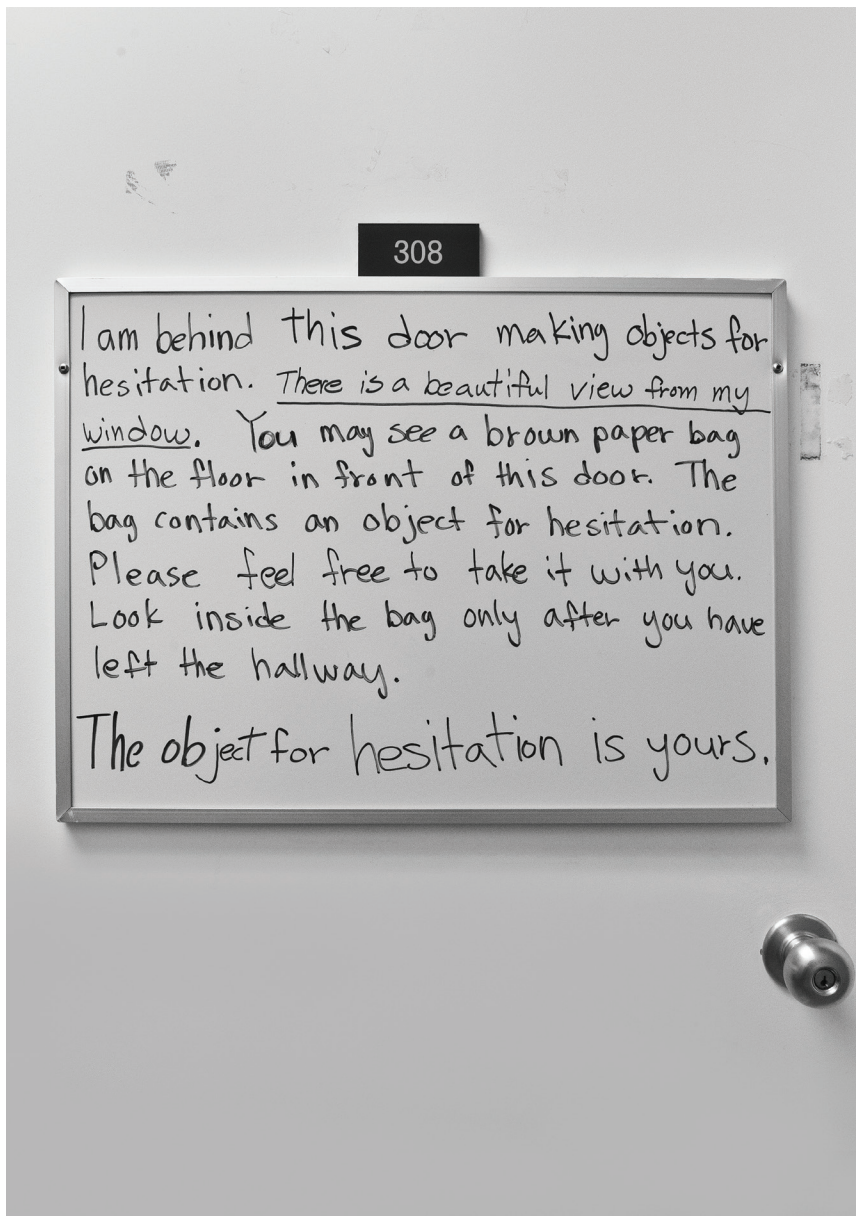 308
I am behind this door making objects for
hesitation. There is a beautiful view from my
window. You may see a brown paper bag
on the floor in front of this door. The
bag contains an object for hesitation.
Please feel free to take it with you.
Look inside the bag only after you have
left the hallway.
The object for hesitation is yours.